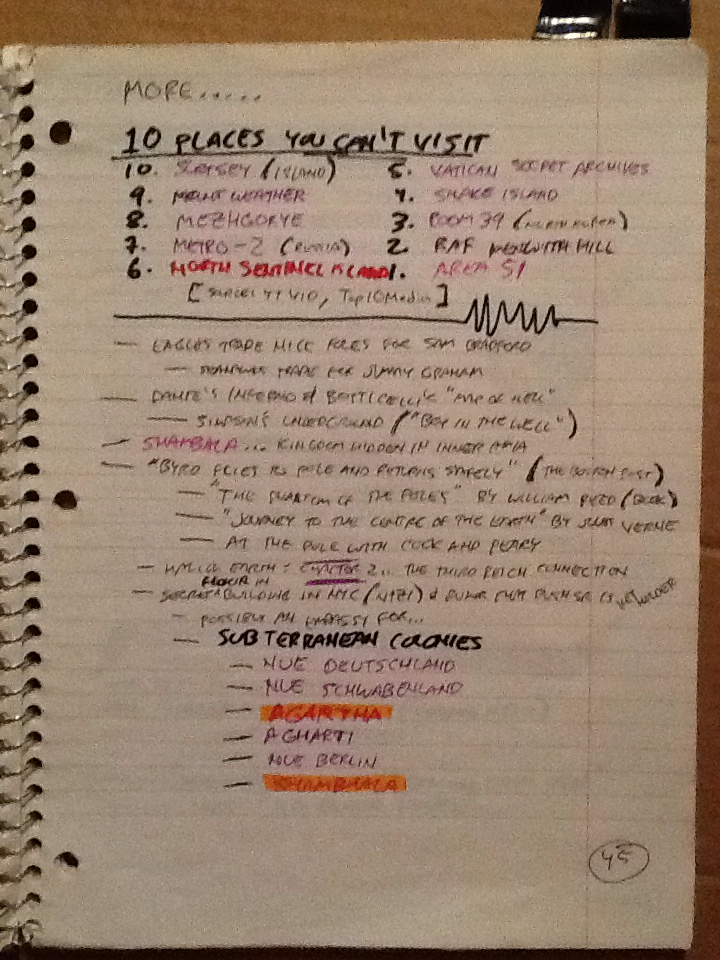 MORE.....
10 PLACES YOU CAN'T VISIT
10. SURTSEY (ISLAND) 5. VATICAN SECRET ARCHIVES
9. MOUNT WEATHER 4. SNAKE ISLAND
8. MEZHGORYE 3. ROOM 39 (NORTH KOREA)
7. METRO-2 (RUSSIA) 2. RAF MENWITH HILL
6. NORTH SENTINEL ISLAND 1. AREA 51
[SOURCE: YT VID, Top10Media]
— EAGLES TRADE NICK FOLES FOR SAM BRADFORD
— TRADE FOR JIMMY GRAHAM
— DANTE'S INFERNO & BOTTICELLI'S "MAP OF HELL"
— SIMPSON'S UNDERGROUND ("BOY IN THE WELL")
— SHAMBALA... KINGDOM HIDDEN IN INNER ASIA
— "BYRD FLIES TO POLE AND RETURNS SAFELY" (THE BOSTON POST)
— "THE PHANTOM OF THE POLES" BY WILLIAM REED (BOOK)
— "JOURNEY TO THE CENTRE OF THE EARTH" BY JULES VERNE
— AT THE POLE WITH COOK AND PEARY
— HOLLOW EARTH: CHAPTER 2... THE THIRD REICH CONNECTION
— SECRET FLOOR IN BUILDING IN NYC (NAZI) &
— POSSIBLY AN EMBASSY FOR...
— SUBTERRANEAN COLONIES
— NUE DEUTSCHLAND
— NUE SCHWABENLAND
— AGARTHA
— AGHARTI
— NUE BERLIN
— SHAMBHALA
45